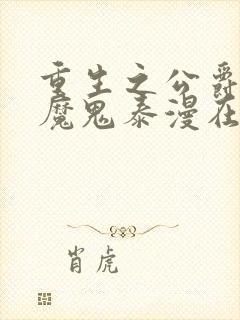 重生之公爵
魔鬼泰漫在
肖虎